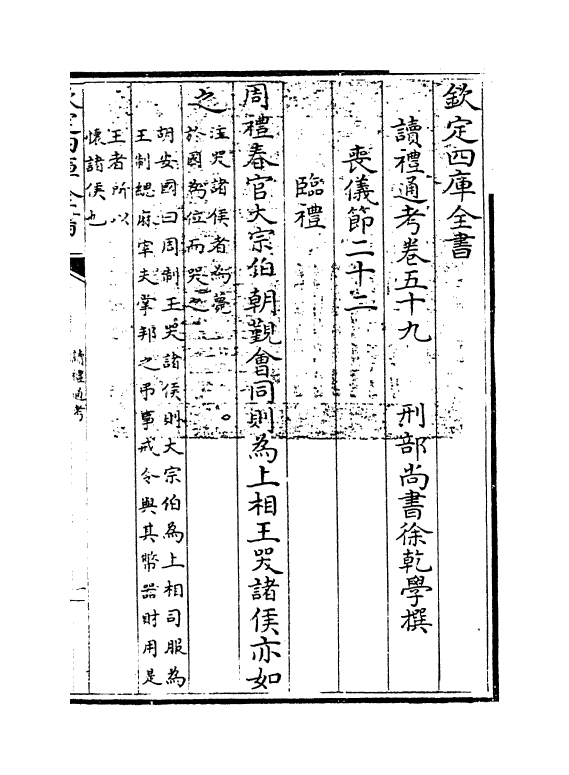 欽定四庫全書
讀禮通考卷五十九　刑部尚書徐乾學撰
喪儀節二十二
臨禮
周禮春官大宗伯朝覲會同則為上相王哭諸侯亦如
之
注哭諸侯者為薨
於國為位而哭之
胡安國曰周制王哭諸侯則大宗伯為上相司服為
王制緦麻宰夫掌邦之弔事戒令與其幣器財用是
王者所以
懷諸侯也
欽定四庫全書
讀禮通考
一